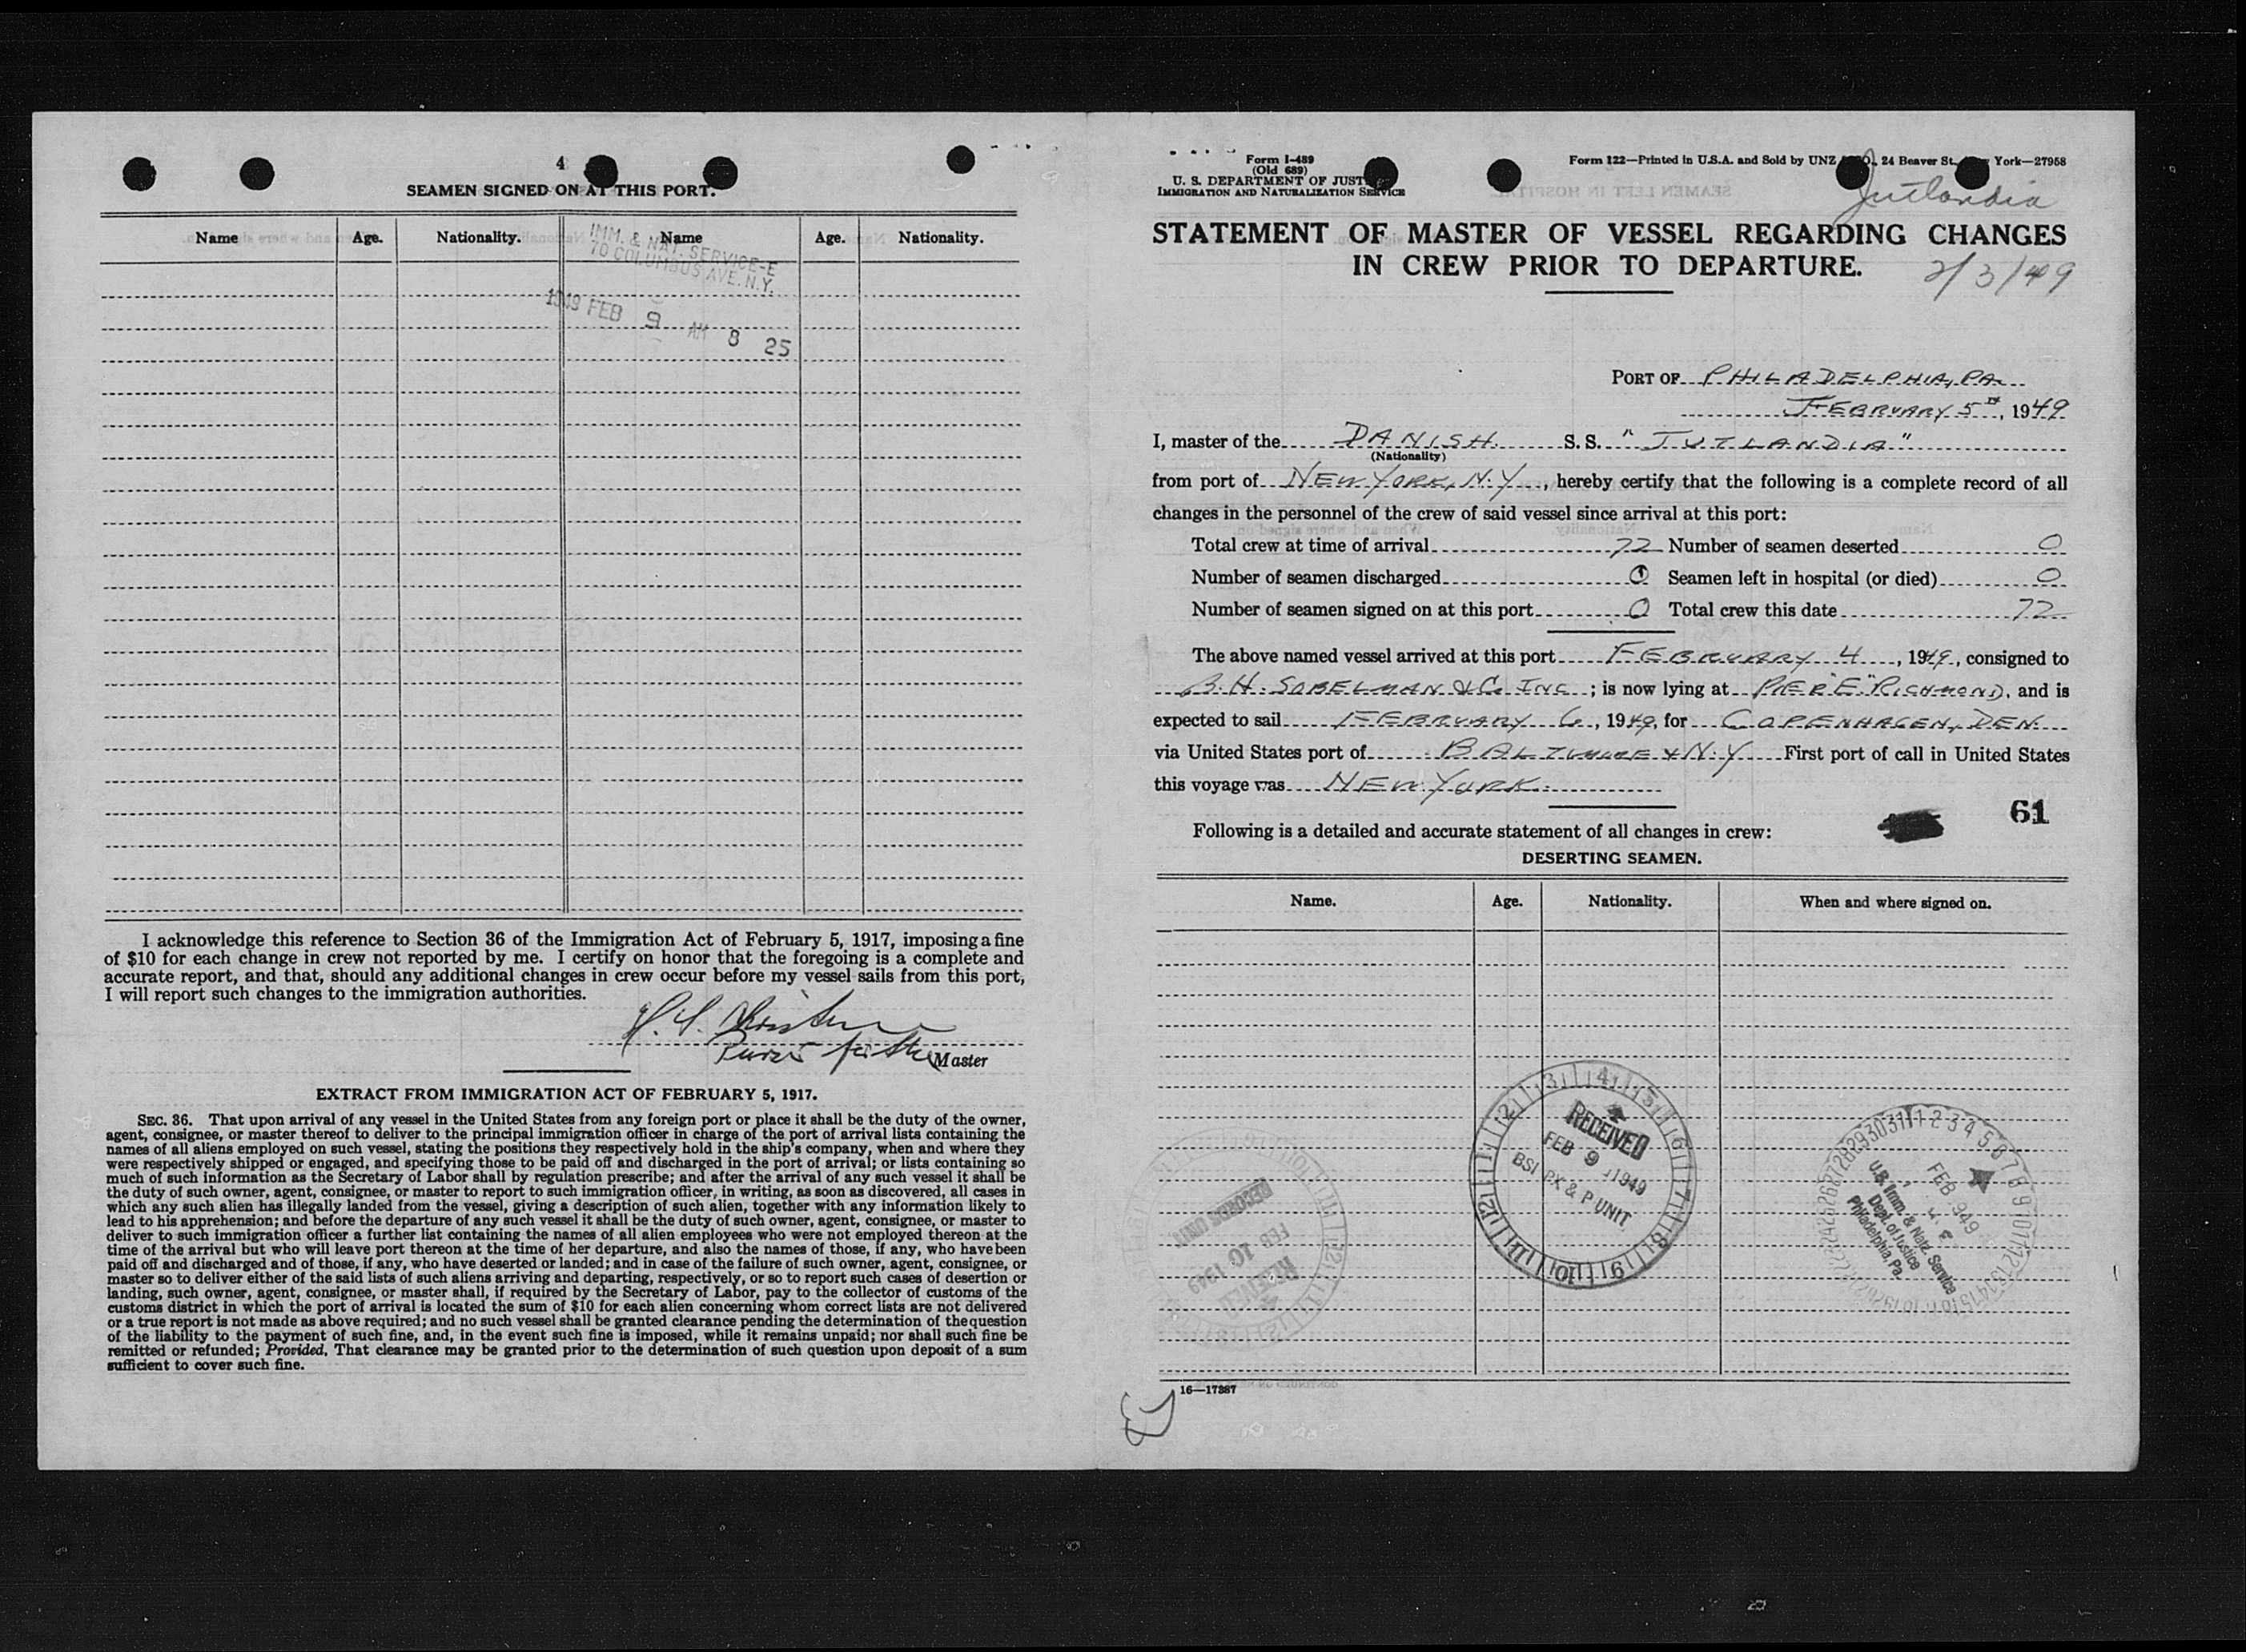 4
SEAMEN SIGNED ON AT THIS PORT.
Name Age. Nationality. Name Age. Nationality.
IMM. & NAT. SERVICE-E
70 COLUMBUS AVE. N.Y.
1949 FEB 9 AM 8 25
I acknowledge this reference to Section 36 of the Immigration Act of February 5, 1917, imposing a fine
of $10 for each change in crew not reported by me. I certify on honor that the foregoing is a complete and
accurate report, and that, should any additional changes in crew occur before my vessel sails from this port,
I will report such changes to the immigration authorities.
Master
EXTRACT FROM IMMIGRATION ACT OF FEBRUARY 5, 1917.
SEC. 36. That upon arrival of any vessel in the United States from any foreign port or place it shall be the duty of the owner,
agent, consignee, or master thereof to deliver to the principal immigration officer in charge of the port of arrival lists containing the
names of all aliens employed on such vessel, stating the positions they respectively hold in the ship's company, when and where they
were respectively shipped or engaged, and specifying those to be paid off and discharged in the port of arrival; or lists containing so
much of such information as the Secretary of Labor shall by regulation prescribe; and after the arrival of any such vessel it shall be
the duty of such owner, agent, consignee, or master to report to such immigration officer, in writing, as soon as discovered, all cases in
which any such alien has illegally landed from the vessel, giving a description of such alien, together with any information likely to
lead to his apprehension; and before the departure of any such vessel it shall be the duty of such owner, agent, consignee, or master to
deliver to such immigration officer a further list containing the names of all alien employees who were not employed thereon at the
time of the arrival but who will leave port thereon at the time of her departure, and also the names of those, if any, who have been
paid off and discharged and of those, if any, who have deserted or landed; and in case of the failure of such owner, agent, consignee, or
master so to deliver either of the said lists of such aliens arriving and departing, respectively, or so to report such cases of desertion or
landing, such owner, agent, consignee, or master shall, if required by the Secretary of Labor, pay to the collector of customs of the
customs district in which the port of arrival is located the sum of $10 for each alien concerning whom correct lists are not delivered
or a true report is not made as above required; and no such vessel shall be granted clearance pending the determination of the question
of the liability to the payment of such fine, and, in the event such fine is imposed, while it remains unpaid; nor shall such fine be
remitted or refunded; Provided, That clearance may be granted prior to the determination of such question upon deposit of a sum
sufficient to cover such fine.
Form I-489
(Old 689)
U. S. DEPARTMENT OF JUST
IMMIGRATION AND NATURALIZATION SERVICE
Form 122—Printed in U.S.A. and Sold by UNZ 24 Beaver St. York—27958
Jutlandia
STATEMENT OF MASTER OF VESSEL REGARDING CHANGES
IN CREW PRIOR TO DEPARTURE.
2/3/49
PORT OF PHILADELPHIA, PA.
FEBRUARY 5th, 1949
I, master of the DANISH S. S. "JUTLANDIA"
(Nationality)
from port of NEW YORK, N.Y., hereby certify that the following is a complete record of all
changes in the personnel of the crew of said vessel since arrival at this port:
Total crew at time of arrival 72 Number of seamen deserted 0
Number of seamen discharged 0 Seamen left in hospital (or died) 0
Number of seamen signed on at this port 0 Total crew this date 72
The above named vessel arrived at this port FEBRUARY 4, 1949, consigned to
B.H. SOBELMAN & Co INC; is now lying at PIER "E" RICHMOND, and is
expected to sail FEBRUARY 6, 1949, for COPENHAGEN, DEN.
via United States port of BALTIMORE & N.Y. First port of call in United States
this voyage was NEW YORK.
61
Following is a detailed and accurate statement of all changes in crew:
DESERTING SEAMEN.
Name. Age. Nationality. When and where signed on.
RECEIVED
FEB 9 1949
BSI PX & P UNIT
RECORDS UNIT
FEB 10 1949
RECEIVED
FEB 9 1949
U.S. Imm. & Natz. Service
Dept. of Justice
Philadelphia, Pa.
16—17387